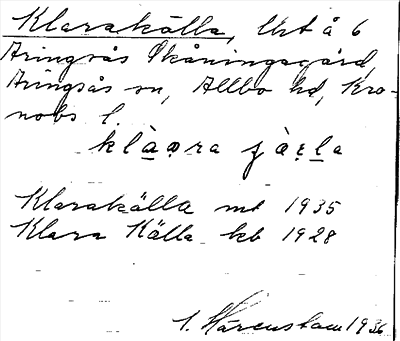 Klarakälla, Urt å 6
Aringsås Skåningagård,
Aringsås sn, Allbo hd, Kro-
nobs l.
klàạra jàẹḷa
Klarakälla mt 1935
Klara Källa kb 1928
S. Härenstam 1936